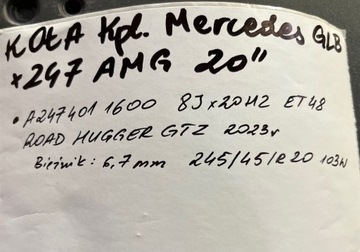 KOŁA Kpl. Mercedes GLB
x247 AMG 20"
• A247401 1600 8Jx20H2 ET48
ROAD HUGGER GTZ 2023r
Bieżnik: 6,7mm 245/45/R20 103W